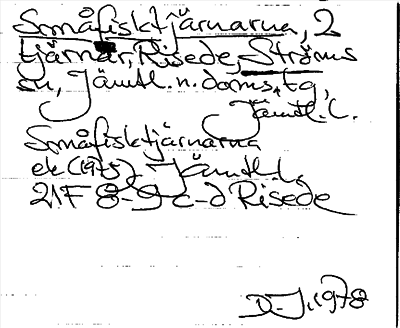 Småfisktjärnarna, 2
tjärnar, Risede, Ströms
sn, Jämtl. n. doms. tg,
Jämtl. l.
Småfisktjärnarna
ek (1975) Jämtl. l.
21F 8-9 c-d Risede
D. J. 1978